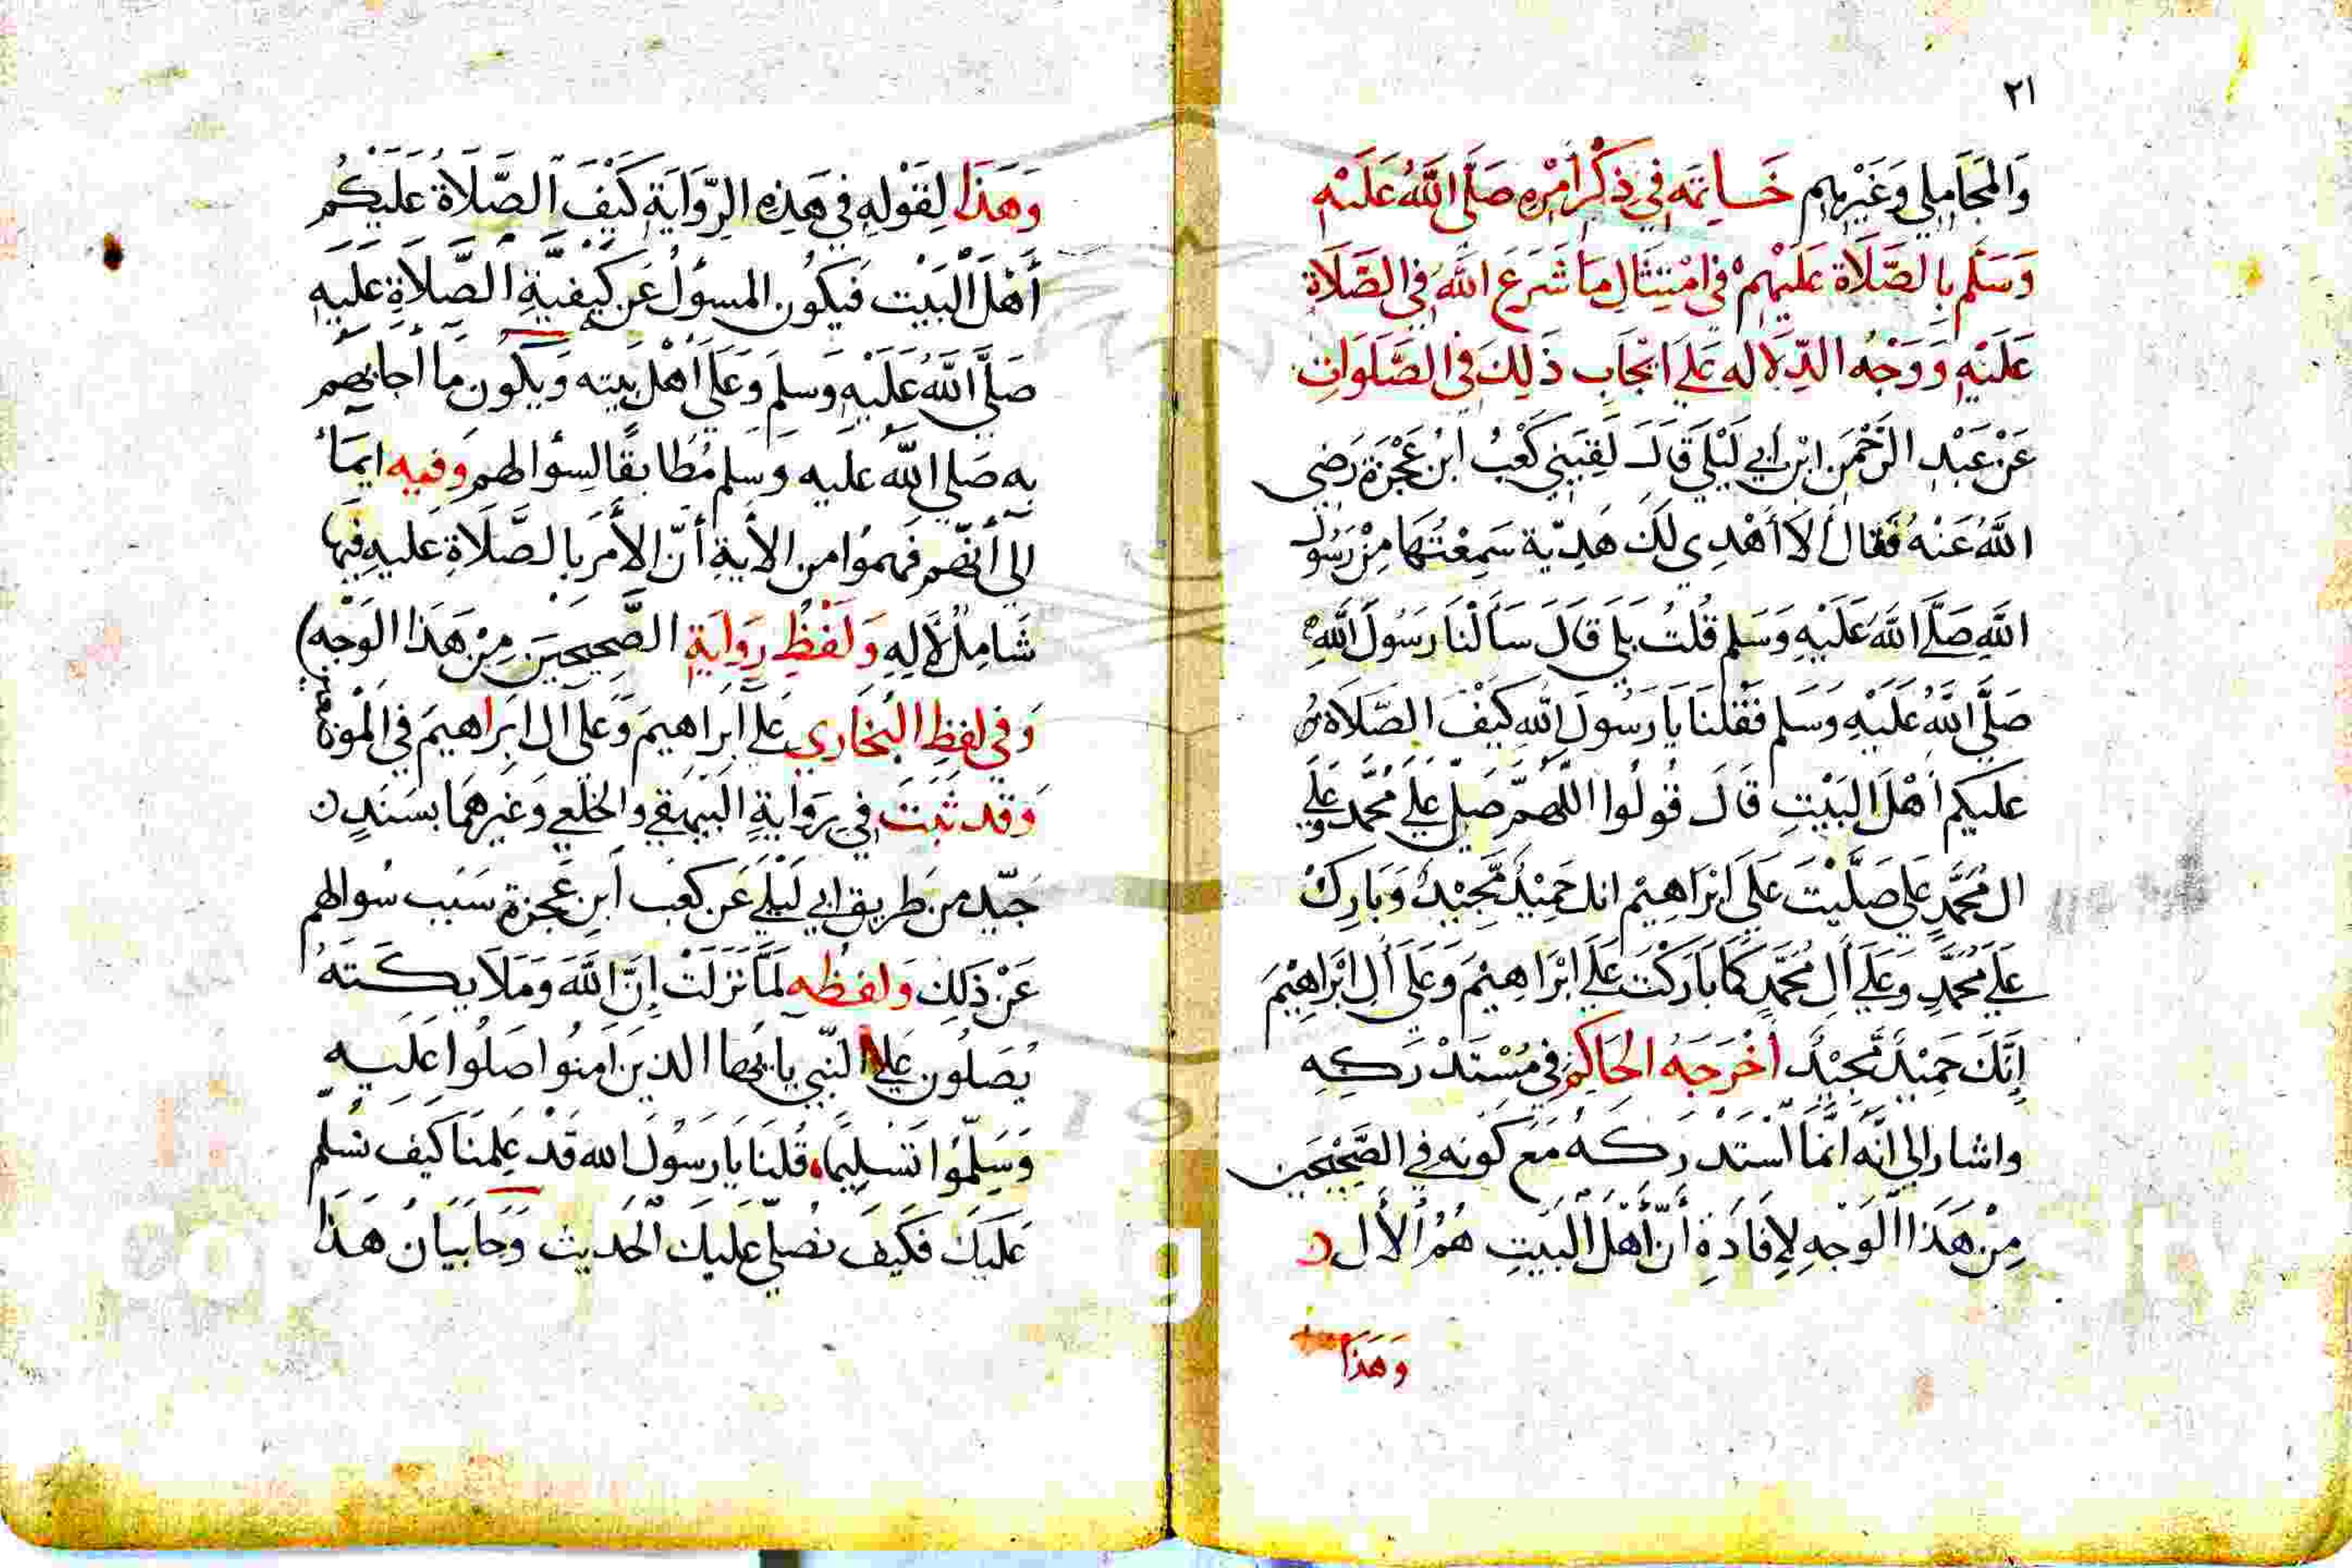 ٢١
وَالمَجَامِلي وَغَيْرِهِم خَاتِمَه فِي ذِكْرِ امْرِهِ صَلَّى اللَّهُ عَلَيْهِ
وَسَلَّم بِالصَّلَاة عَلَيْهِمْ فى امْتِثَالِ مَا شَرَعَ اللَّهُ فِى الصَّلَاةِ
عَلَيْهِ وَوَجْهُ الدِّلَالَه عَلَى ايْجَابِ ذَلِكَ فِى الصَّلَوَاتِ
عَنْ عَبْدِ الرَّحْمَنِ ابْنِ أَبِي لَيْلَى قَالَ لَقِيَنِي كَعْبُ ابْن عَجْرَةَ رَضِي
اللَّهُ عَنْهُ فَقَالَ أَلَا أُهْدِي لَكَ هَدِيّة سَمِعْتُهَا مِنْ رَسُولِ
اللَّهِ صَلَّى اللَّهُ عَلَيْهِ وَسَلم قُلْتُ بَلَى قَالَ سَأَلْنَا رَسُولَ اللَّهِ
صَلَّى اللَّهُ عَلَيْهِ وَسَلم فَقُلْنَا يَا رَسُولَ اللَّهِ كَيْفَ الصَّلَاة
عَليكم أهْلَ البَيْتِ قَالَ قُولُوا اللّهمّ صَلِّ عَلَى مُحَمَّد وعَلَى
ال مُحَمَّدٍ عَلى صَلَّيْتَ عَلَى ابْرَاهِيْم انك حَمِيْدٌ مَّجِيْدٌ وَبَارِكْ
عَلَى مُحَمَّدٍ وَعَلَى أَلِ مُحَمَّدٍ كَمَا بَارَكْتَ عَلَى ابْرَاهِيْمَ وَعَلَى أَلِ ابْرَاهِيْمَ
إِنَّكَ حَمِيْدٌ مَّجِيْدٌ أخْرَجَهُ الحَاكِمُ فِي مُسْتَدْرَكِهِ
واشار الى انَّهُ انَّمَا اسْتَدْرَكَهُ مَعَ كَونِهِ فِي الصَّحِيْحَيْن
مِنْ هَذَا الوَجْهِ لِإفَادَةِ أَنَّ أَهْلَ البَيتِ هُمُ الأَل
وَهَذَا
وَهَذَا لِقَوْلِهِ فِي هَذِهِ الرِّوَايَةِ كَيْفَ الصَّلَاة عَلَيْكُم
أَهْلَ البَيْتِ فَيَكُون المسؤلُ عَن كَيْفِيَّةِ الصَّلَاةِ عَلَيهِ
صَلَّى اللَّهُ عَلَيْهِ وَسلمَ وَعَلَى أهْلِ بَيته وَيَكُون مَا أجابهم
به صَلى اللَّه عَليه وَسَلم مُطَابقًا لِسؤالهم وفيه ايمَاء
الى أنّهم فَهِمُوا من الأيةِ أنّ الأمرَ بالصَّلَاةِ عَليهِ فِيهَا
شَامِلٌ لِألِهِ وَلَفْظُ رِوَايَةِ الصَّحِيحَين مِنْ هَذَا الوَجْهِ
وَفي لفظِ البُخَاري عَلى ابْرَاهِيمَ وَعَلى ال ابْرَاهيمَ في الْمَوْضعين
وَقد ثبَتَ فِي رِوَايةِ البَيْهقي والخلَعِي وَغيرهمَا بسَنَدٍ
جَيّد من طَريق ابي لَيْلَى عَن كعَب ابنِ عَجرة سَبَب سُوالهم
عَنْ ذَلِك وَلفظُه لَمَّا نَزَلَتْ إِنَّ اللَّهَ وَمَلَايكَتَهُ
يُصَلُون عَلى النَّبِي يا يها الذين آمنُوا صَلُوا عَلَيهِ
وَسَلِّمُوا تَسليمًا قُلنَا يَا رَسُولَ الله قَدْ عَلِمنَا كَيف نسَلِم
عَلَيَكَ فَكَيفَ نصَلِّي عَلَيكَ الْحَديث وَحَا بَيَانُ هَذَا